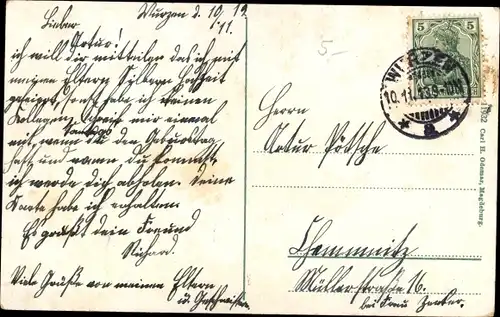 Wurzen d. 10/12
'11.
Lieber
Artur!
ich will dir mitteilen das ich mit
meinen Eltern Silbern Hochzeit
gefeiert, sonst habe ich keinen
Kollegen, schreib mir einmal
mit, wann du den Geburtstag
hast, und wann du kommst
ich werde dich abholen. Deine
Karte habe ich erhalten.
Es grüßt dein Freund
Richard.
Viele Grüße von meinen Eltern
u. Geschwister
5-
5 5
WURZEN
a
Herrn
Artur Pötsche
Chemmnitz
Müllerstraße 16.
bei Frau
Carl H. Odemar, Magdeburg.